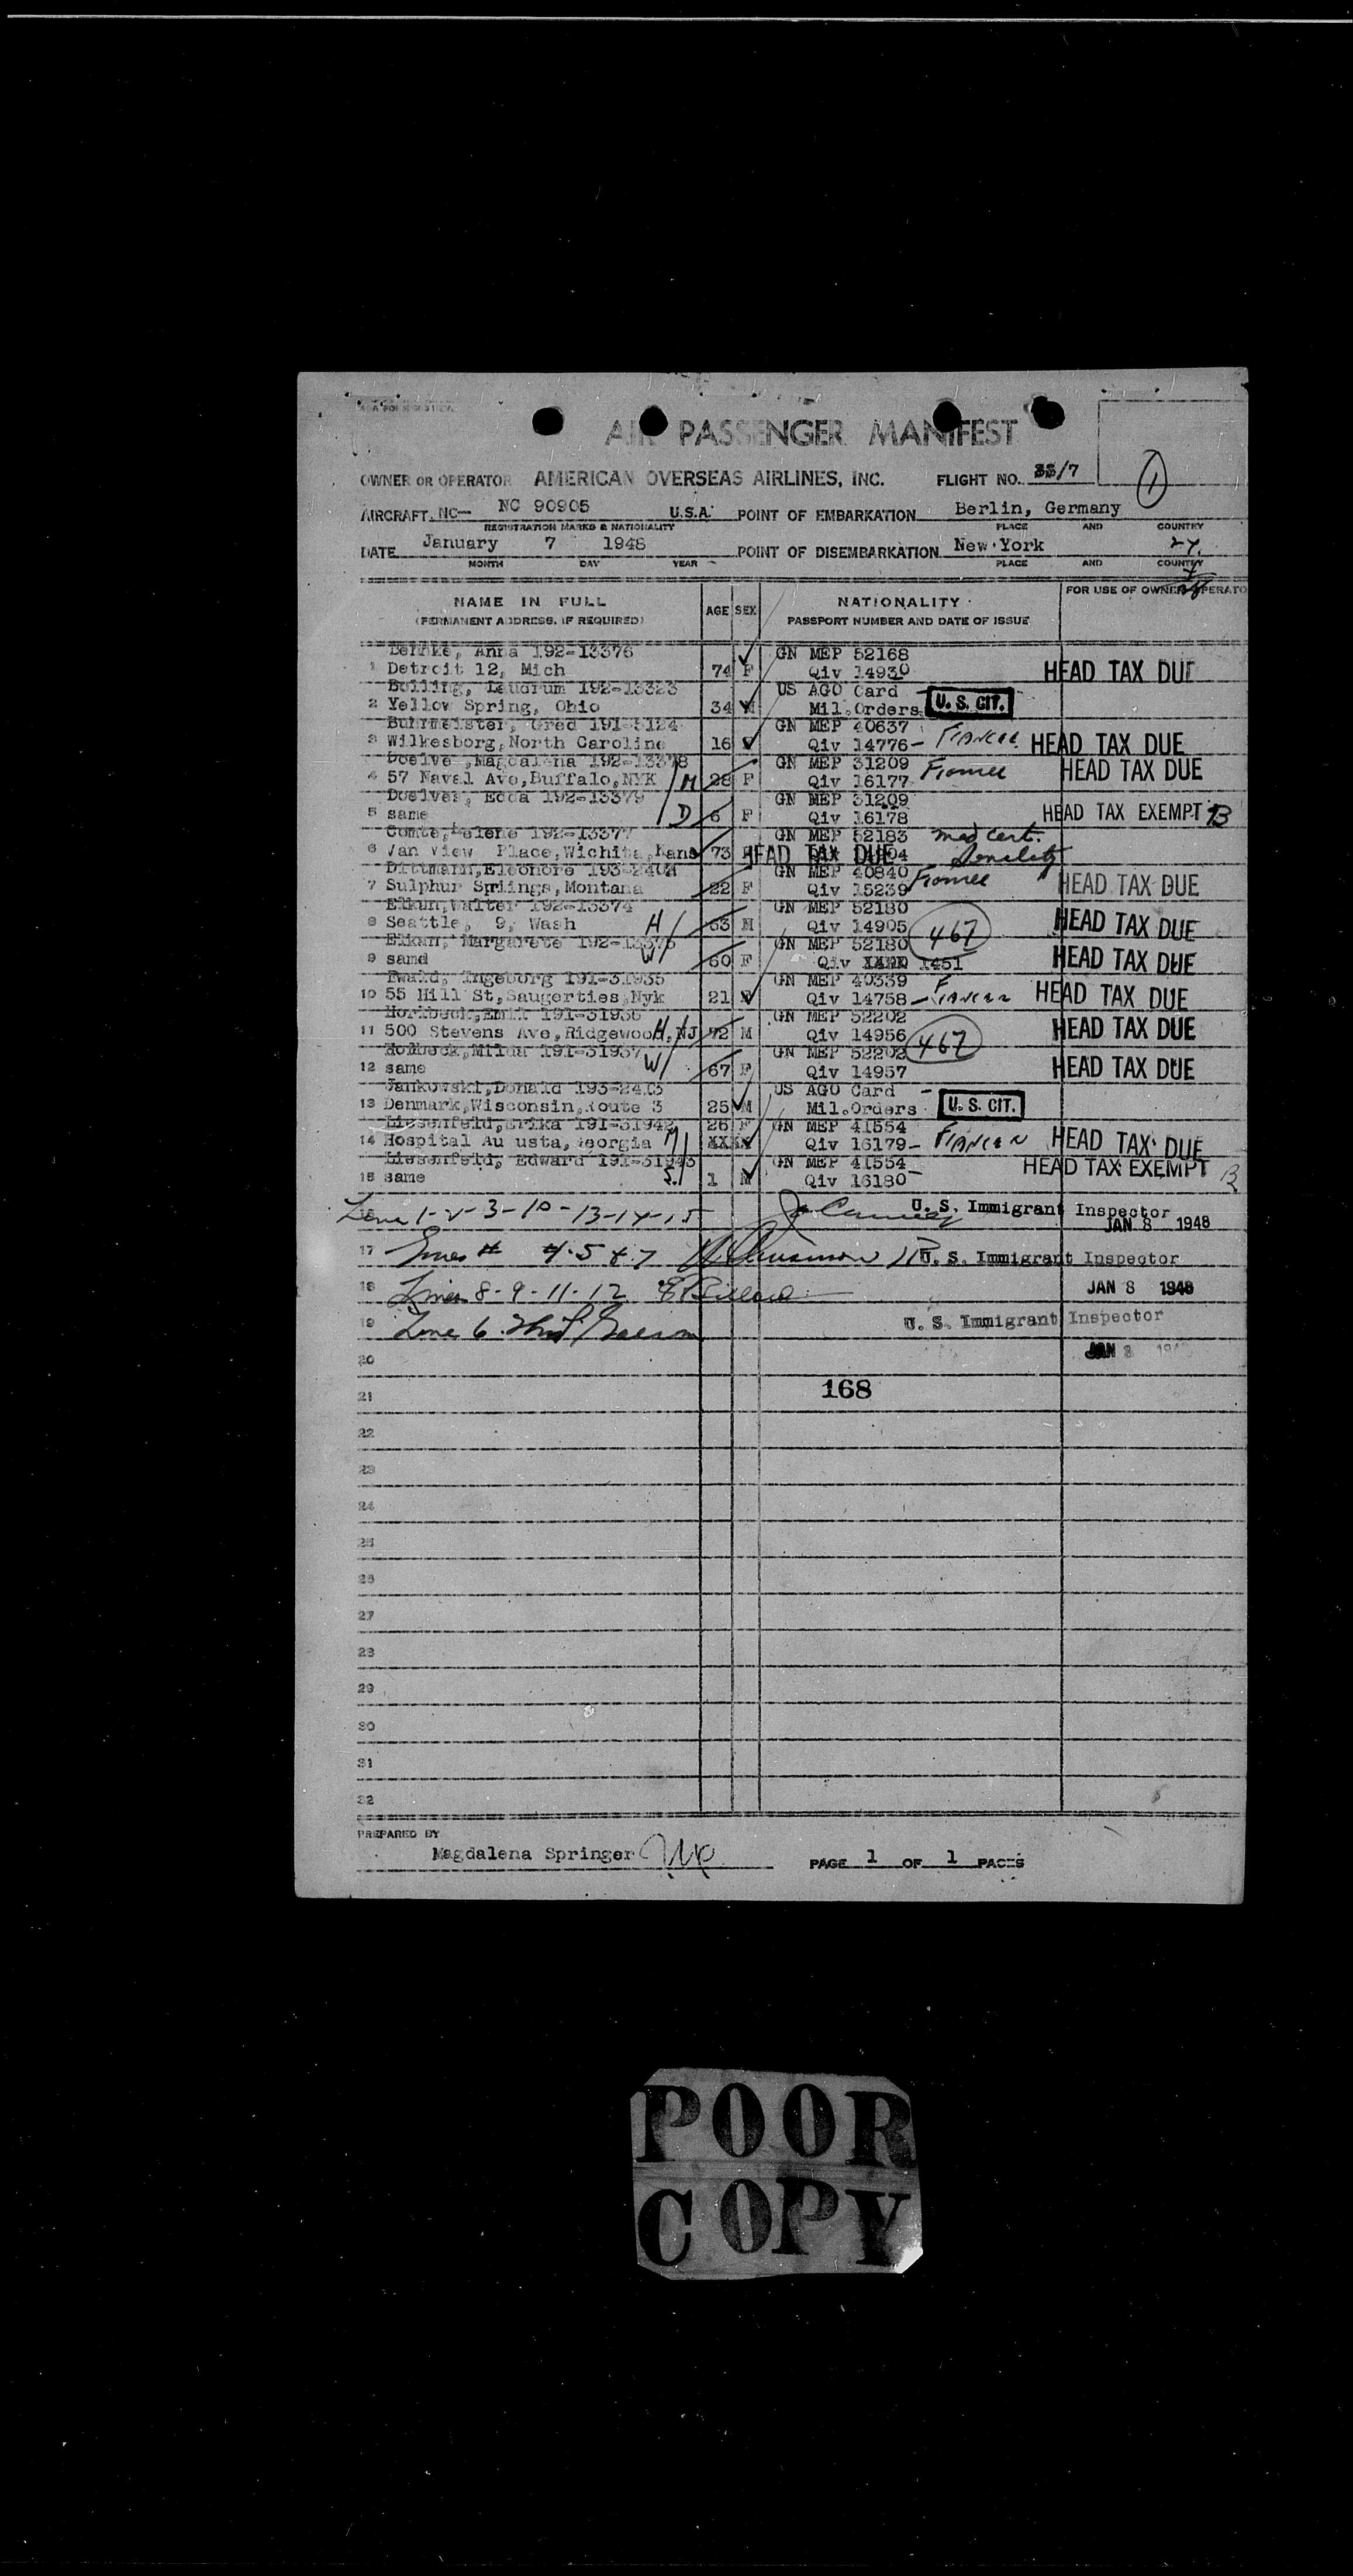 AIR PASSENGER MANIFEST
OWNER OR OPERATOR AMERICAN OVERSEAS AIRLINES, INC. FLIGHT NO. 33/7
1
AIRCRAFT NC— NC 90905 U.S.A. POINT OF EMBARKATION Berlin, Germany
REGISTRATION MARKS & NATIONALITY PLACE AND COUNTRY
DATE January 7 1948 POINT OF DISEMBARKATION New York
MONTH DAY YEAR PLACE AND COUNTRY
NAME IN FULL AGE SEX NATIONALITY FOR USE OF OWNER OPERATO
(PERMANENT ADDRESS, IF REQUIRED) PASSPORT NUMBER AND DATE OF ISSUE
Anna 192-13376 GN MEP 52168
1 Detroit 12, Mich 74 F Qiv 14930 HEAD TAX DUE
Bolling, Laudrum 192-13323 US AGO Card
2 Yellow Spring, Ohio 34 M Mil.Orders U.S. CIT.
Buhrmeister, Gred 191-3124 GN MEP 40637
3 Wilkesborg, North Caroline 16 Qiv 14776- Fiancee HEAD TAX DUE
Magdalena 192-13378 GN MEP 31209
4 57 Naval Ave, Buffalo, NYK M 28 F Qiv 16177 Fiancee HEAD TAX DUE
Edda 192-13379 GN MEP 31209
5 same D 6 F Qiv 16178 HEAD TAX EXEMPT 13
Comte, Helene 192-13377 GN MEP 52183 med cert.
6 Van View Place, Wichita, Kans 73 HEAD TAX DUE 04 Senility
Dittmann, Eleonore 193-2404 GN MEP 40840
7 Sulphur Springs, Montana 22 F Qiv 15239 Fiancee HEAD TAX DUE
Elkan, Walter 192-13374 GN MEP 52180
8 Seattle, 9, Wash H 63 M Qiv 14905 467 HEAD TAX DUE
Elkan, Margarete 192-13375 GN MEP 52180
9 samd W 60 F Qiv 1451 HEAD TAX DUE
Ewald, Ingeborg 191-31935 GN MEP 40339
10 55 Hill St, Saugerties, Nyk 21 F Qiv 14758 - Fiancee HEAD TAX DUE
Emil 191-31936 GN MEP 52202
11 500 Stevens Ave, Ridgewood, NJ H 72 M Qiv 14956 467 HEAD TAX DUE
191-31937 GN MEP 52202
12 same W 67 F Qiv 14957 HEAD TAX DUE
Jankowski, Donald 193-2413 US AGO Card -
13 Denmark, Wisconsin, Route 3 25 M Mil.Orders U.S. CIT.
Liesenfeld, Erika 191-31942 26 F GN MEP 41554
14 Hospital Au usta, Georgia M XXX Qiv 16179- Fiancee HEAD TAX DUE
Liesenfeld, Edward 191-31943 GN MEP 41554
15 same S. 1 M Qiv 16180 HEAD TAX EXEMPT 13
Line 1-2-3-10-13-14-15 U. S. Immigrant Inspector
JAN 8 1948
17 Lines # 4.5 & 7 U. S. Immigrant Inspector
18 Lines 8-9-11-12 JAN 8 1948
19 Line 6. U. S. Immigrant Inspector
20 JAN 8 194
21 168
22
23
24
25
26
27
28
29
30
31
32
PREPARED BY
Magdalena Springer
PAGE 1 OF 1 PAGES
POOR
COPY